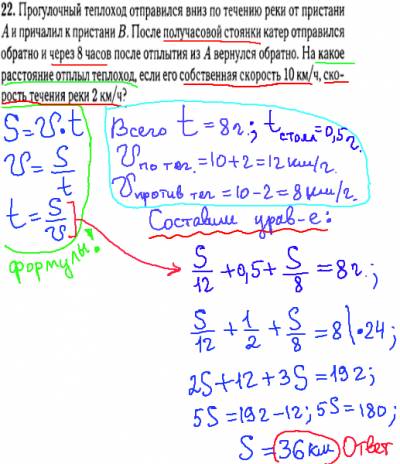 22. Прогулочный теплоход отправился вниз по течению реки от пристани
A и причалил к пристани B. После получасовой стоянки катер отправился
обратно и через 8 часов после отплытия из A вернулся обратно. На какое
расстояние отплыл теплоход, если его собственная скорость 10 км/ч, ско-
рость течения реки 2 км/ч?
S=v·t
v=S/t
t=S/v
формулы!
Всего t=8ч.; t стоял=0,5ч.
v по теч.=10+2=12км/ч.
v против теч=10-2=8км/ч.
Составим урав-е:
S/12+0,5+S/8=8ч.;
S/12+1/2+S/8=8|·24;
2S+12+3S=192;
5S=192-12; 5S=180;
S=36км Ответ